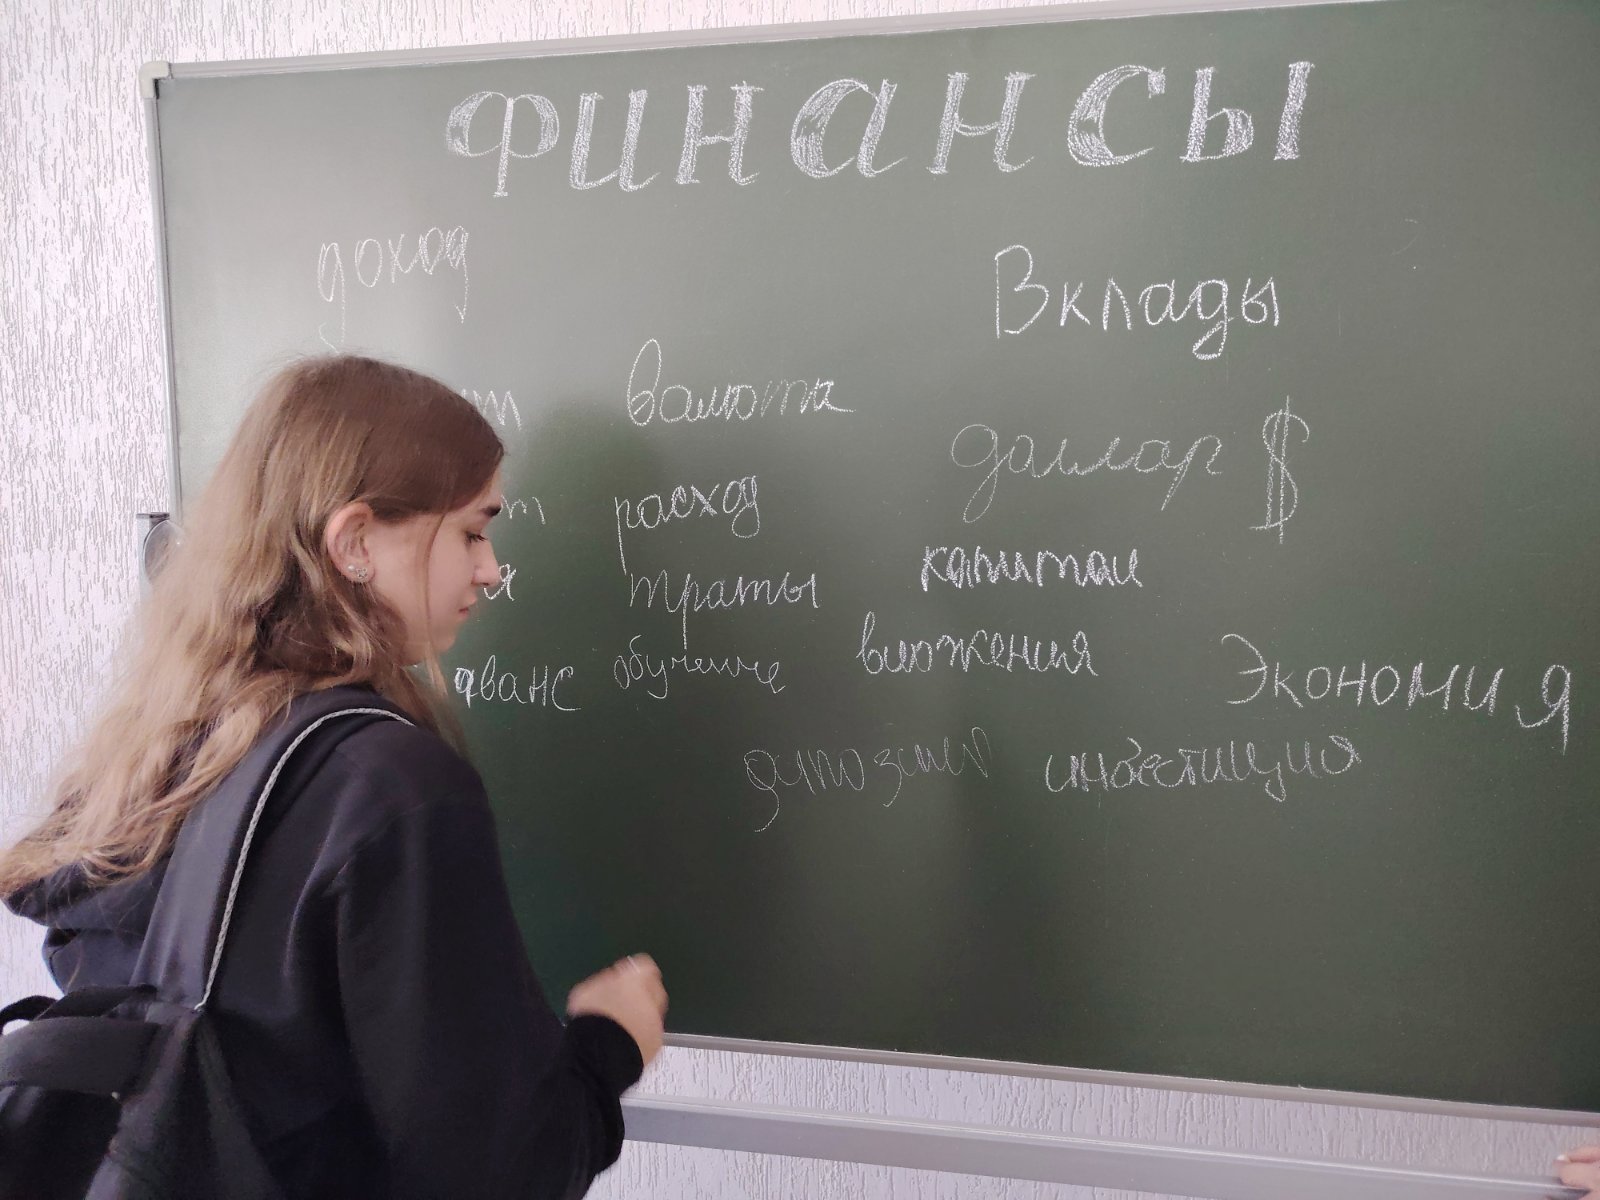 ФИНАНСЫ
доход
Вклады
валюта
доллар $
расход
траты
капитал
аванс обучение вложения Экономия
депозит инвестиция